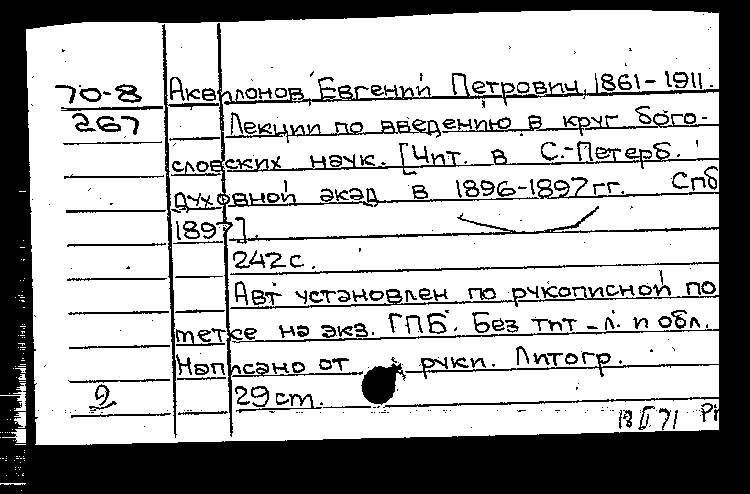 70-8 Аквилонов, Евгений Петрович, 1861-1911.
267 Лекции по введению в круг бого-
словских наук. [Чит. в С.-Петерб.
духовной акад в 1896-1897 гг. Спб
1897].
242 с.
Авт установлен по рукописной по
метке на экз. ГПБ. Без тит-л. и обл.
Написано от руки. Литогр.
2 29 cm.
18 II 71